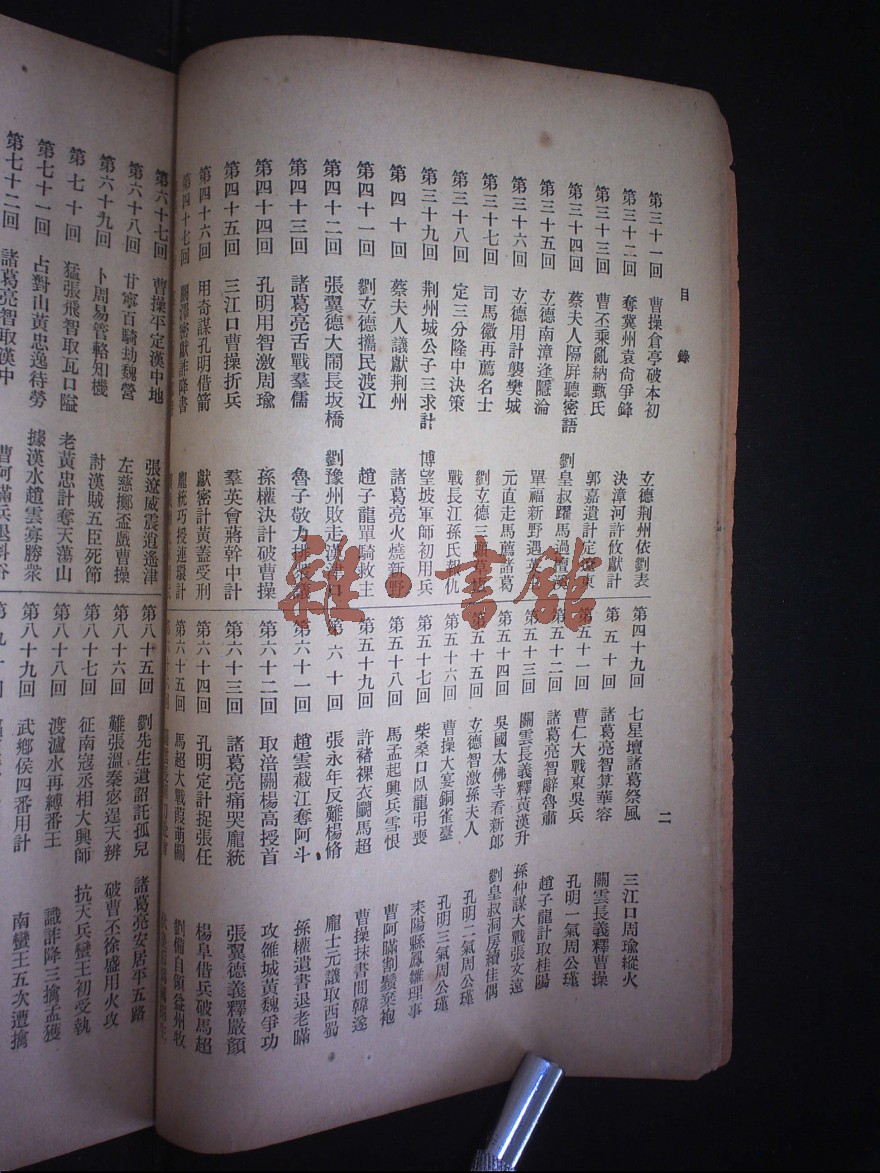 目錄
二
第三十一回 曹操倉亭破本初 玄德荆州依劉表
第三十二回 奪冀州袁尙爭鋒 決漳河許攸獻計
第三十三回 曹丕乘亂納甄氏 郭嘉遺計定遼東
第三十四回 蔡夫人隔屏聽密語 劉皇叔躍馬過檀溪
第三十五回 玄德南漳逢隱淪 單福新野遇
第三十六回 玄德用計襲樊城 元直走馬薦諸葛
第三十七回 司馬徽再薦名士 劉玄德三顧草廬
第三十八回 定三分隆中決策 戰長江孫氏報仇
第三十九回 荆州城公子三求計 博望坡軍師初用兵
第四十回 蔡夫人議獻荆州 諸葛亮火燒新野
第四十一回 劉玄德攜民渡江 趙子龍單騎救主
第四十二回 張翼德大鬧長坂橋 劉豫州敗走漢津口
第四十三回 諸葛亮舌戰羣儒 魯子敬力排
第四十四回 孔明用智激周瑜 孫權決計破曹操
第四十五回 三江口曹操折兵 羣英會蔣幹中計
第四十六回 用奇謀孔明借箭 獻密計黃蓋受刑
第四十七回 闞澤密獻詐降書 龐統巧授連環計
第四十九回 七星壇諸葛祭風 三江口周瑜縱火
第五十回 諸葛亮智算華容 關雲長義釋曹操
第五十一回 曹仁大戰東吳兵 孔明一氣周公瑾
第五十二回 諸葛亮智辭魯肅 趙子龍計取桂陽
第五十三回 關雲長義釋黃漢升 孫仲謀大戰張文遠
第五十四回 吳國太佛寺看新郎 劉皇叔洞房續佳偶
第五十五回 玄德智激孫夫人 孔明二氣周公瑾
第五十六回 曹操大宴銅雀臺 孔明三氣周公瑾
第五十七回 柴桑口臥龍弔喪 耒陽縣鳳雛理事
第五十八回 馬孟起興兵雪恨 曹阿瞞割鬚棄袍
第五十九回 許褚裸衣鬬馬超 曹操抹書間韓遂
第六十回 張永年反難楊脩 龐士元議取西蜀
第六十一回 趙雲截江奪阿斗 孫權遺書退老瞞
第六十二回 取涪關楊高授首 攻雒城黃魏爭功
第六十三回 諸葛亮痛哭龐統 張翼德義釋嚴顏
第六十四回 孔明定計捉張任 楊阜借兵破馬超
第六十五回 馬超大戰葭萌關 劉備自領益州牧
第六十七回 曹操平定漢中地 張遼威震逍遙津
第六十八回 甘寧百騎劫魏營 左慈擲盃戲曹操
第六十九回 卜周易管輅知機 討漢賊五臣死節
第七十回 猛張飛智取瓦口隘 老黃忠計奪天蕩山
第七十一回 占對山黃忠逸待勞 據漢水趙雲寡勝衆
第七十二回 諸葛亮智取漢中 曹阿瞞兵退斜谷
第八十五回 劉先生遺詔託孤兒 諸葛亮安居平五路
第八十六回 難張溫秦宓逞天辨 破曹丕徐盛用火攻
第八十七回 征南寇丞相大興師 抗天兵蠻王初受執
第八十八回 渡瀘水再縛番王 識詐降三擒孟獲
第八十九回 武鄉侯四番用計 南蠻王五次遭擒
雜·書館